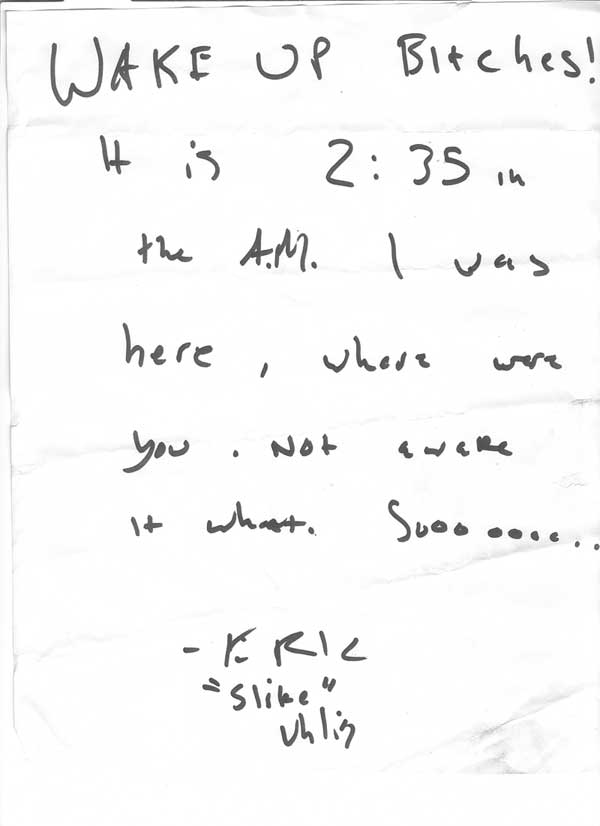 WAKE UP Bitches!
It is 2:35 in
the A.M. I was
here, where were
you. Not aware
it what. Soooooooo..
-ERIC
"Slike"
Uhlis